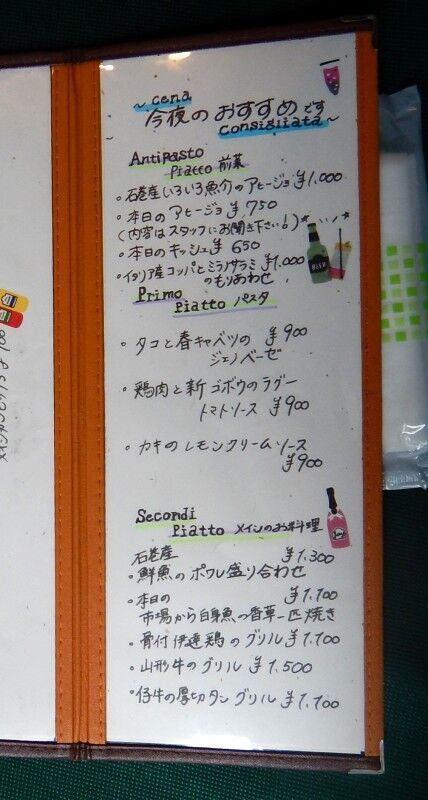 ~ cena
今夜の おすすめ です
consigliata ~
Antipasto
Piatto 前菜
・石巻産いろいろ魚介のアヒージョ ¥1,000
・本日の アヒージョ ¥750
(内容は スタッフにお聞き下さい!)
・本日の キッシュ ¥650
・イタリア産コッパとミラノサラミ ¥1,000
のもりあわせ
Primo
Piatto パスタ
・タコと春キャベツの ¥900
ジェノベーゼ
・鶏肉と新ゴボウのラグー
トマトソース ¥900
・カキのレモンクリームソース
¥900
Secondi
Piatto メインのお料理
石巻産 ¥1,300
・鮮魚のポワレ盛り合わせ
・本日の ¥1,700
市場から白身魚の香草一匹焼き
・骨付伊達鶏のグリル ¥1,700
・山形牛のグリル ¥1,500
・仔牛の厚切タングリル ¥1,700